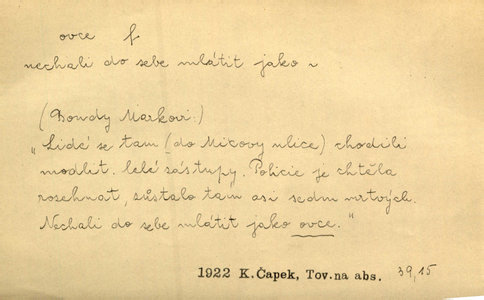 ovce f
nechali do sebe mlátit jako ~
(Bondy Markovi:)
"Lidé se tam (do Mixovy ulice) chodili
modlit, celé zástupy. Policie je chtěla
rozehnat, zůstalo tam asi sedm mrtvých.
Nechali do sebe mlátit jako ovce."
1922 K.Čapek, Tov.na abs. 39,15